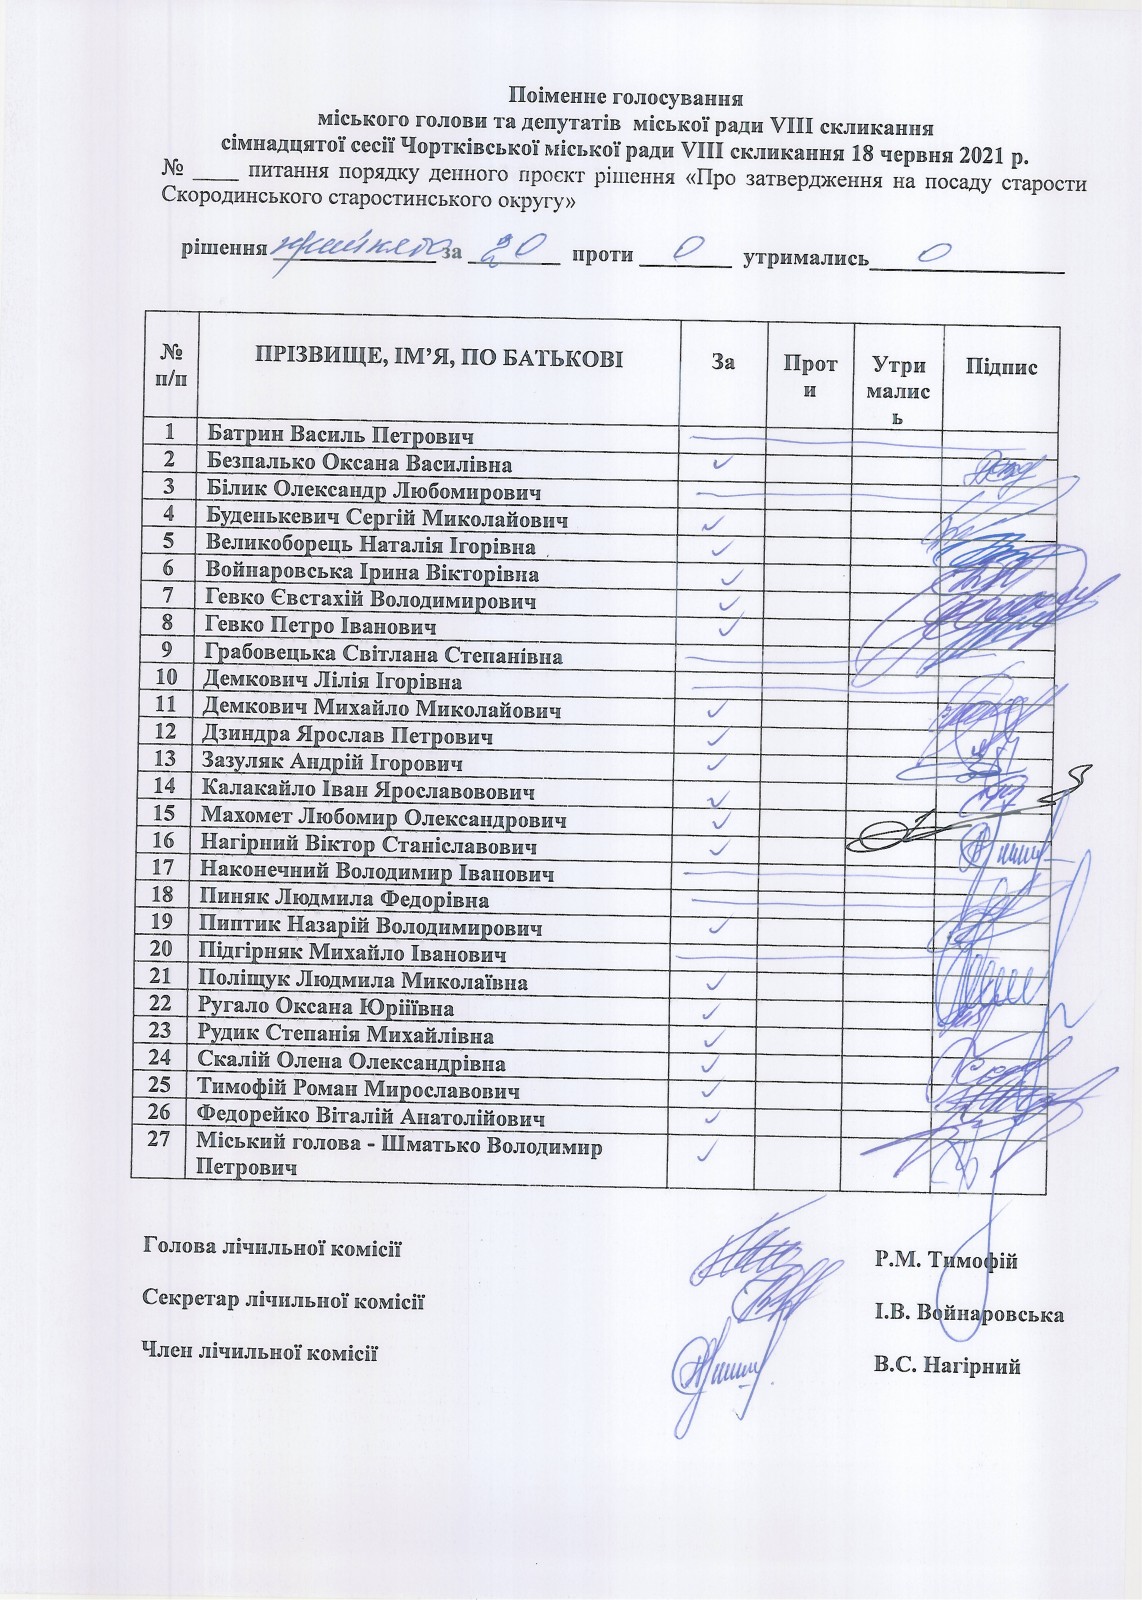 Поіменне голосування
міського голови та депутатів міської ради VIII скликання
сімнадцятої сесії Чортківської міської ради VIII скликання 18 червня 2021 р.
№ ____ питання порядку денного проєкт рішення «Про затвердження на посаду старости
Скородинського старостинського округу»
рішення прийнято за 20 проти 0 утримались 0
№ п/п ПРІЗВИЩЕ, ІМ’Я, ПО БАТЬКОВІ За Прот и Утри малис ь Підпис
1 Батрин Василь Петрович
2 Безпалько Оксана Василівна ✓
3 Білик Олександр Любомирович
4 Буденькевич Сергій Миколайович ✓
5 Великоборець Наталія Ігорівна ✓
6 Войнаровська Ірина Вікторівна ✓
7 Гевко Євстахій Володимирович ✓
8 Гевко Петро Іванович ✓
9 Грабовецька Світлана Степанівна
10 Демкович Лілія Ігорівна
11 Демкович Михайло Миколайович ✓
12 Дзиндра Ярослав Петрович ✓
13 Зазуляк Андрій Ігорович ✓
14 Калакайло Іван Ярославовович ✓
15 Махомет Любомир Олександрович ✓
16 Нагірний Віктор Станіславович ✓
17 Наконечний Володимир Іванович
18 Пиняк Людмила Федорівна
19 Пиптик Назарій Володимирович ✓
20 Підгірняк Михайло Іванович
21 Поліщук Людмила Миколаївна ✓
22 Ругало Оксана Юріїївна ✓
23 Рудик Степанія Михайлівна ✓
24 Скалій Олена Олександрівна ✓
25 Тимофій Роман Мирославович ✓
26 Федорейко Віталій Анатолійович ✓
27 Міський голова - Шматько Володимир ✓
Петрович
Голова лічильної комісії Р.М. Тимофій
Секретар лічильної комісії І.В. Войнаровська
Член лічильної комісії В.С. Нагірний